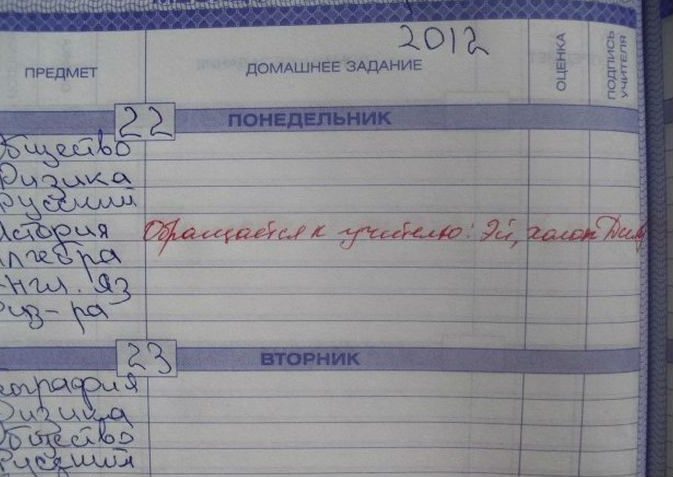 2012
ПРЕДМЕТ ДОМАШНЕЕ ЗАДАНИЕ ОЦЕНКА ПОДПИСЬ УЧИТЕЛЯ
22 ПОНЕДЕЛЬНИК
бщество
Физика
Русский
История Обращается к учителю: Эй, холоп
лгебра
нгл. яз
Физ-ра
23 ВТОРНИК
еография
Физика
Общество
Русский